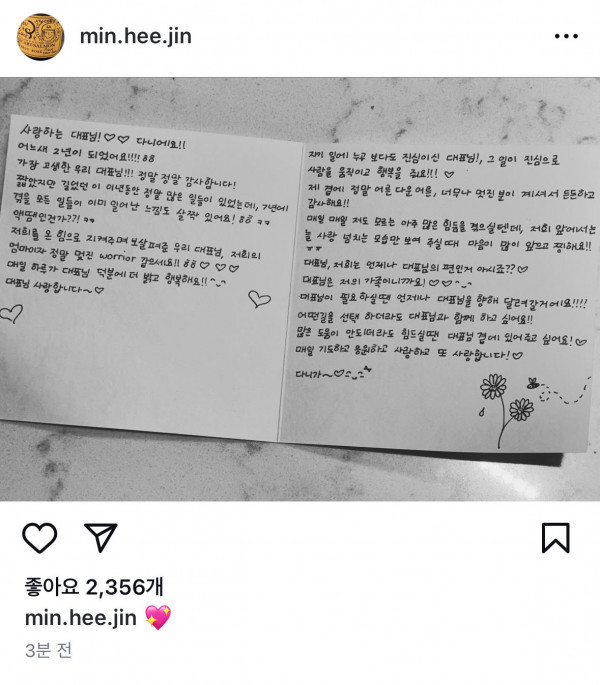 min.hee.jin
사랑하는 대표님! ♡♡ 다니에요!!
어느새 2년이 되었어요!!!! ㅠㅠ
가장 고생한 우리 대표님!!! 정말 정말 감사합니다!
짧았지만 길었던 이 이년동안 정말 많은 일들이 있었는데, 7년에
겪을 모든 일들이 이미 일어난 느낌도 살짝 있어요!
액땜인건가??! ㅋㅋ
저희를 온 힘으로 지켜주며 보살펴준 우리 대표님, 저희의
엄마이자 정말 멋진 worrior 같으세요!! ♡♡♡
매일 하루가 대표님 덕분에 더 밝고 행복해요!! ^_^
대표님 사랑합니다~♡
자기 일에 누구 보다도 진심이신 대표님!, 그 일이 진심으로
사람을 움직이고 행복을 주요!!! ♡
제 곁에 정말 어른 다운 어른, 너무나 멋진 분이 계셔서 든든하고
감사해요!!
매일 매일 저도 모르는 아주 많은 힘듦을 겪으실텐데, 저희 앞에서는
늘 사랑 넘치는 모습만 보여 주실 때 마음이 많이 앞으고 찡해요!!
ㅠㅠ
대표님, 저희는 언제나 대표님의 편인거 아시죠?? ♡
대표님은 저의 가족이니까요! ♡♡ ^_^
대표님이 필요하실땐 언제나 대표님을 향해 달려갈거에요!!!!
어떤길을 선택 하더라도 대표님과 함께 하고 싶어요!!
많은 도움이 안되더라도 힘드실땐 대표님 곁에 있어주고 싶어요! ♡
매일 기도하고 응원하고 사랑하고 또 사랑합니다! ♡
다니가~♡
좋아요 2,356개
min.hee.jin 💖
3분 전